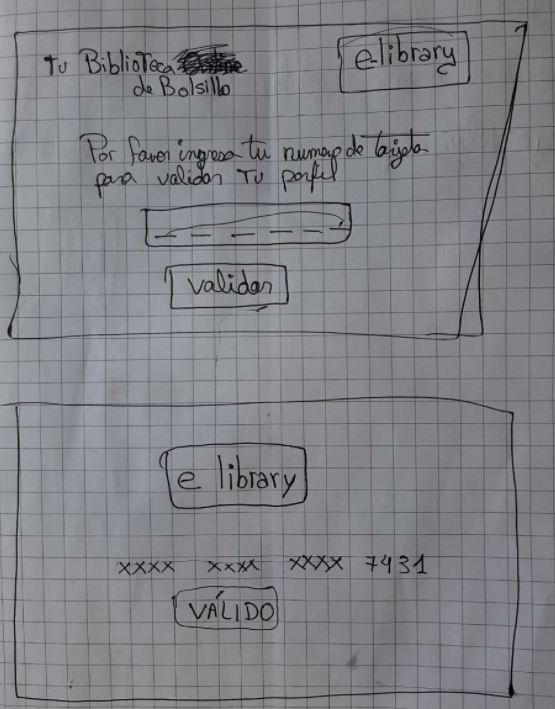 Tu Biblioteca
de Bolsillo
e-library
Por favor ingresa tu numero de tarjeta
para validar tu perfil
_ _ _ _ _
validar
e library
xxxx xxxx xxxx 7431
VÁLIDO